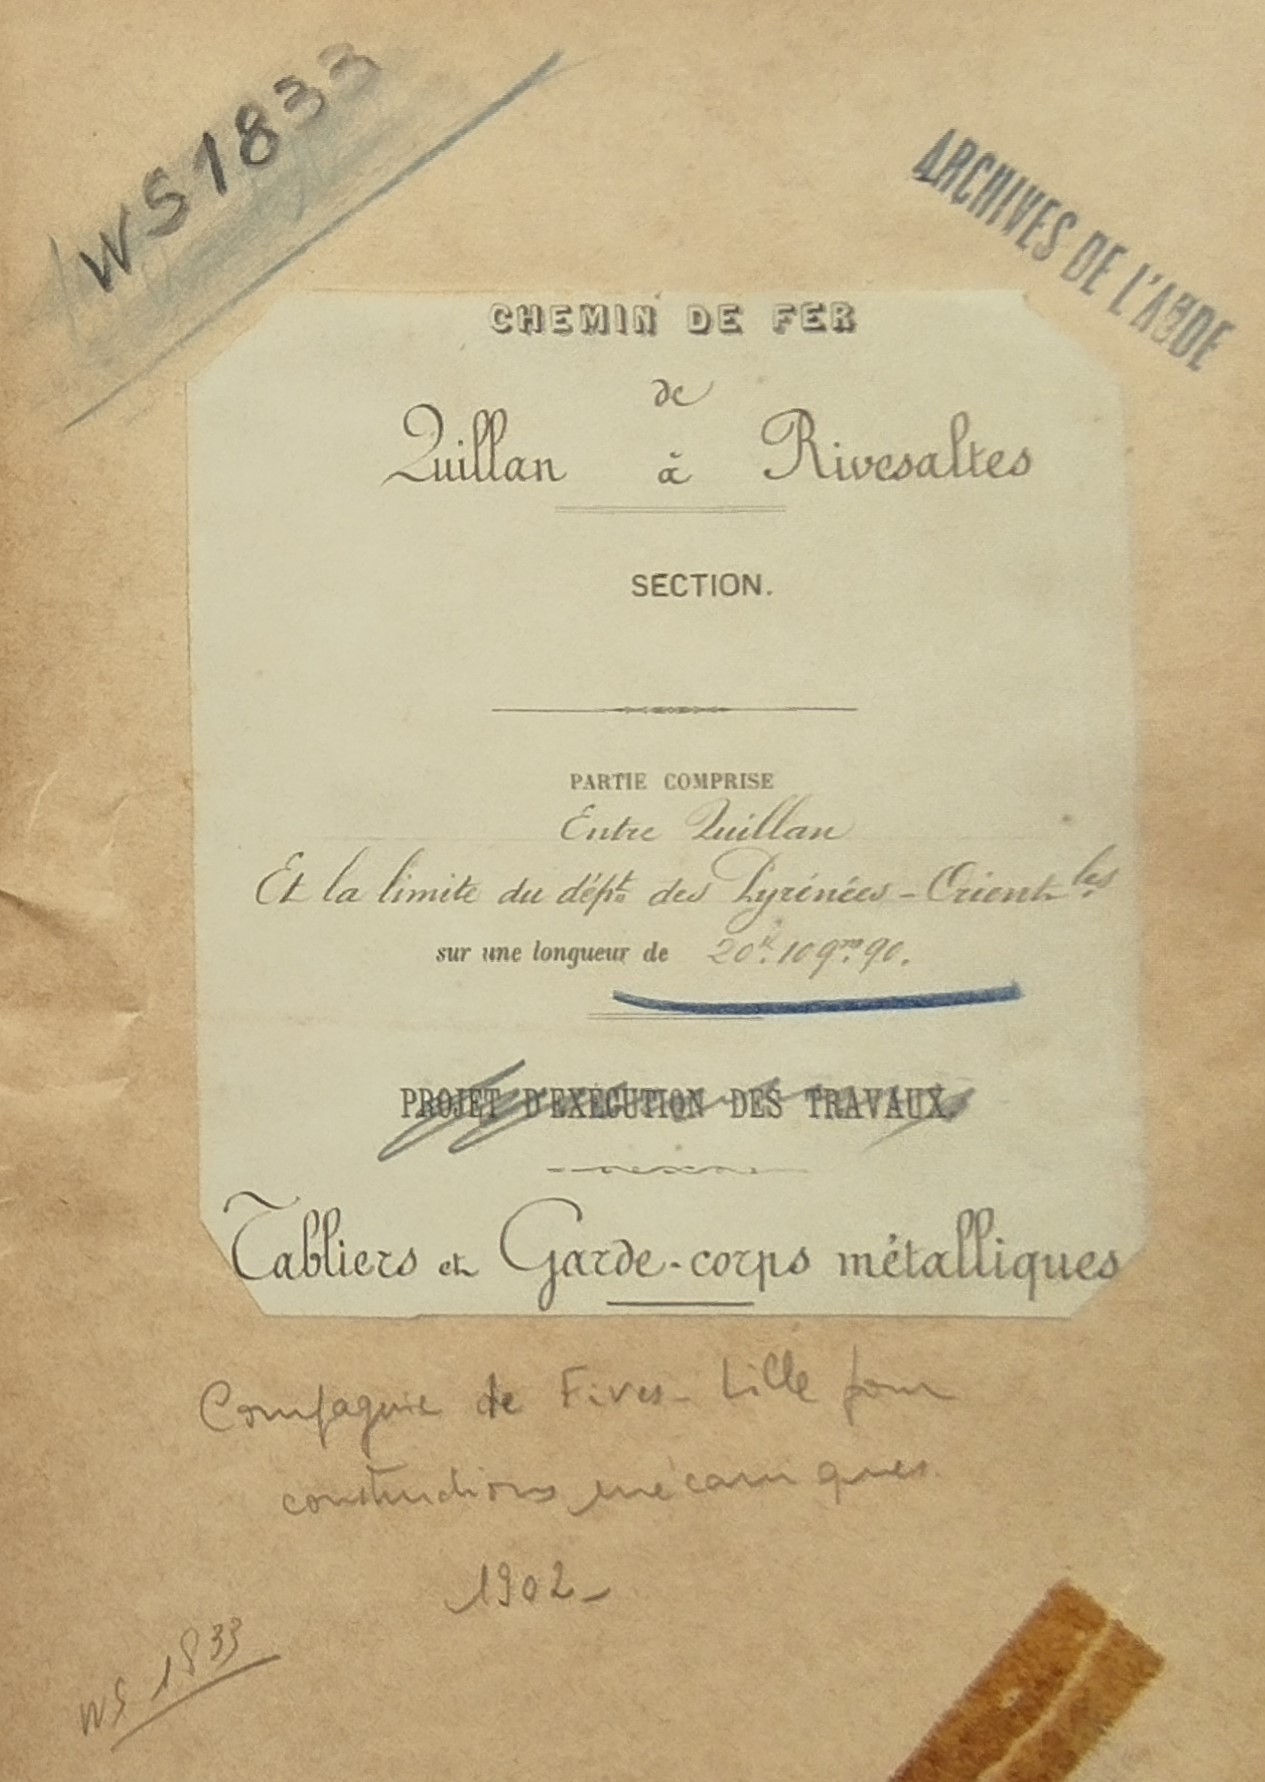 WS 1833
ARCHIVES DE L'AUDE
CHEMIN DE FER
de
Quillan à Rivesaltes
SECTION.
PARTIE COMPRISE
Entre Quillan
Et la limite du dépt. des Pyrénées-Orientles
sur une longueur de 20k.109m.90.
PROJET D'EXÉCUTION DES TRAVAUX.
Tabliers et Garde-corps métalliques
Compagnie de Fives-Lille pour
constructions mécaniques
1902-
WS 1833